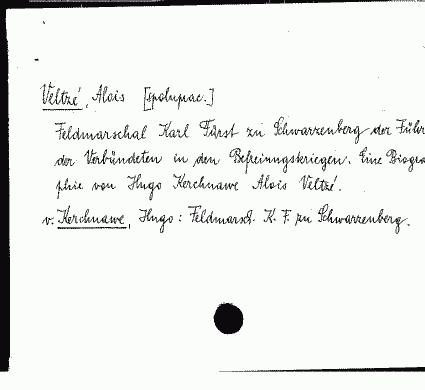 Veltzé, Alois [spolupac.]
Feldmarschal Karl Fürst zu Schwarzenberg der Führ
der Verbündeten in den Befreiungskriegen. Eine Biogra
phie von Hugo Kerchnawe Alois Veltzé.
v. Kerchnawe, Hugo: Feldmarsch. K. F. zu Schwarzenberg.